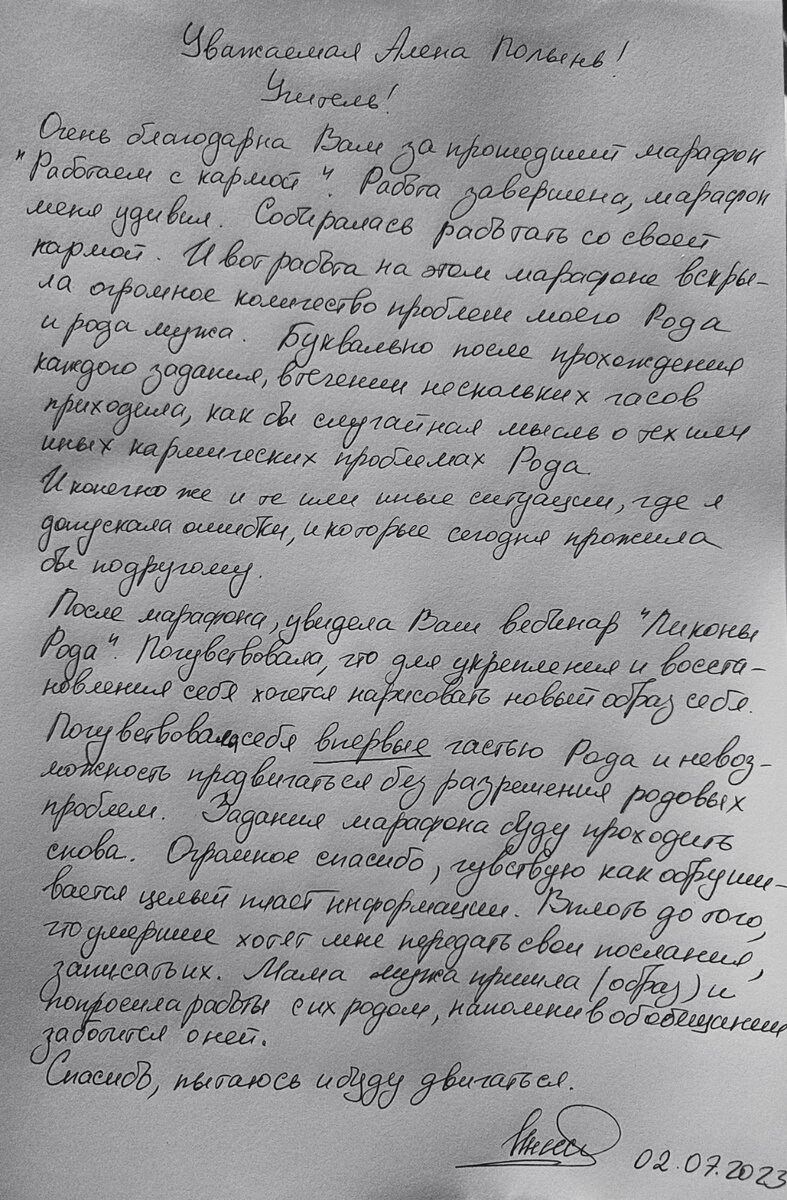 Уважаемая Алена Полынь!
Учитель!
Очень благодарна Вам за прошедший марафон
"Работаем с кармой". Работа завершена, марафон
меня удивил. Собиралась работать со своей
кармой. И вот работа на этом марафоне вскры-
ла огромное количество проблем моего Рода
и рода мужа. Буквально после прохождения
каждого задания, втечении нескольких часов
приходила, как бы случайная мысль о тех или
иных кармических проблемах Рода
И конечно же и те или иные ситуации, где я
допускала ошибки, и которые сегодня прожила
бы подругому.
После марафона, увидела Ваш вебинар "Пиконы
Рода". Почувствовала, что для укрепления и восста-
новления себя хочется нарисовать новый образ себя.
Почувствовала себя впервые частью Рода и невоз-
можность продвигаться без разрешения родовых
проблем. Задания марафона буду проходить
снова. Огромное спасибо, чувствую как обруши-
вается целый пласт информации. Вплоть до того,
что умершие хотят мне передать свои послания,
записать их. Мама мужа пришла (образ) и
попросила работы с их родом, напомнив об обещании
заботится о ней.
Спасибо, пытаюсь и буду двигаться.
02.07.2023